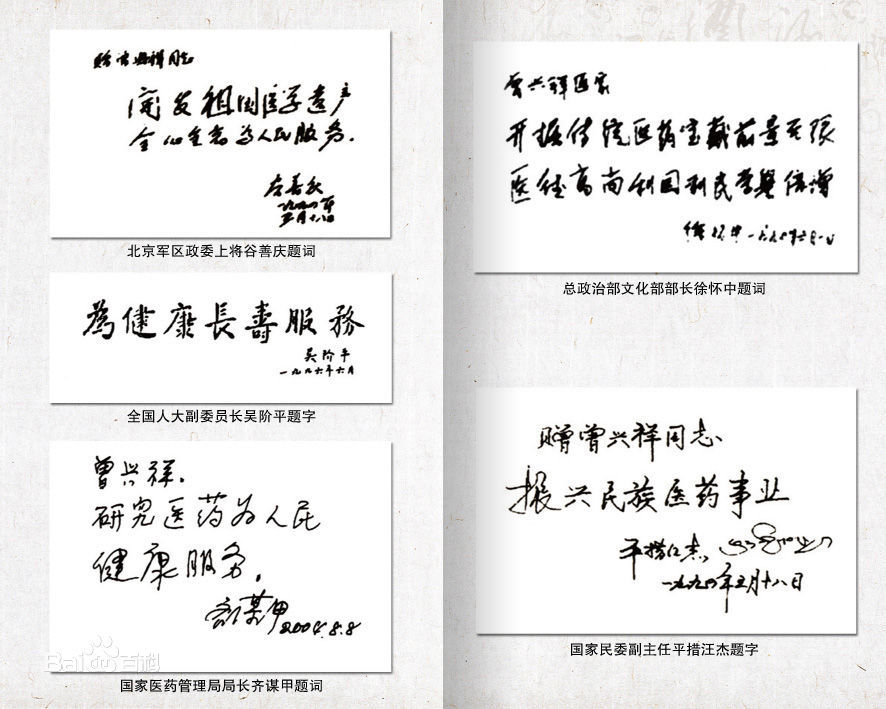 赠曾兴祥同志
开发祖国医学遗产
全心全意为人民服务.
谷善庆
一九九四年
五月十八日
北京军区政委上将谷善庆题词
為健康長壽服務
吴阶平
一九九六年六月
全国人大副委员长吴阶平题字
曾兴祥.
研究医药为人民
健康服务.
齐谋甲 2004.8.8
国家医药管理局局长齐谋甲题词
Baidu百科
曾兴祥医家
开掘传统医药宝藏前景无限
医德高尚利国利民荣誉倍增
徐怀中
总政治部文化部部长徐怀中题词
赠曾兴祥同志
振兴民族医药事业
平措汪杰
一九九四年五月十八日
国家民委副主任平措汪杰题字